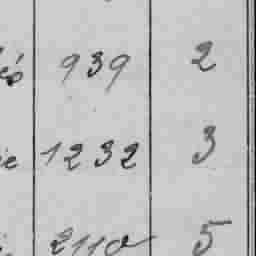 939 2
1232 3
2110 5